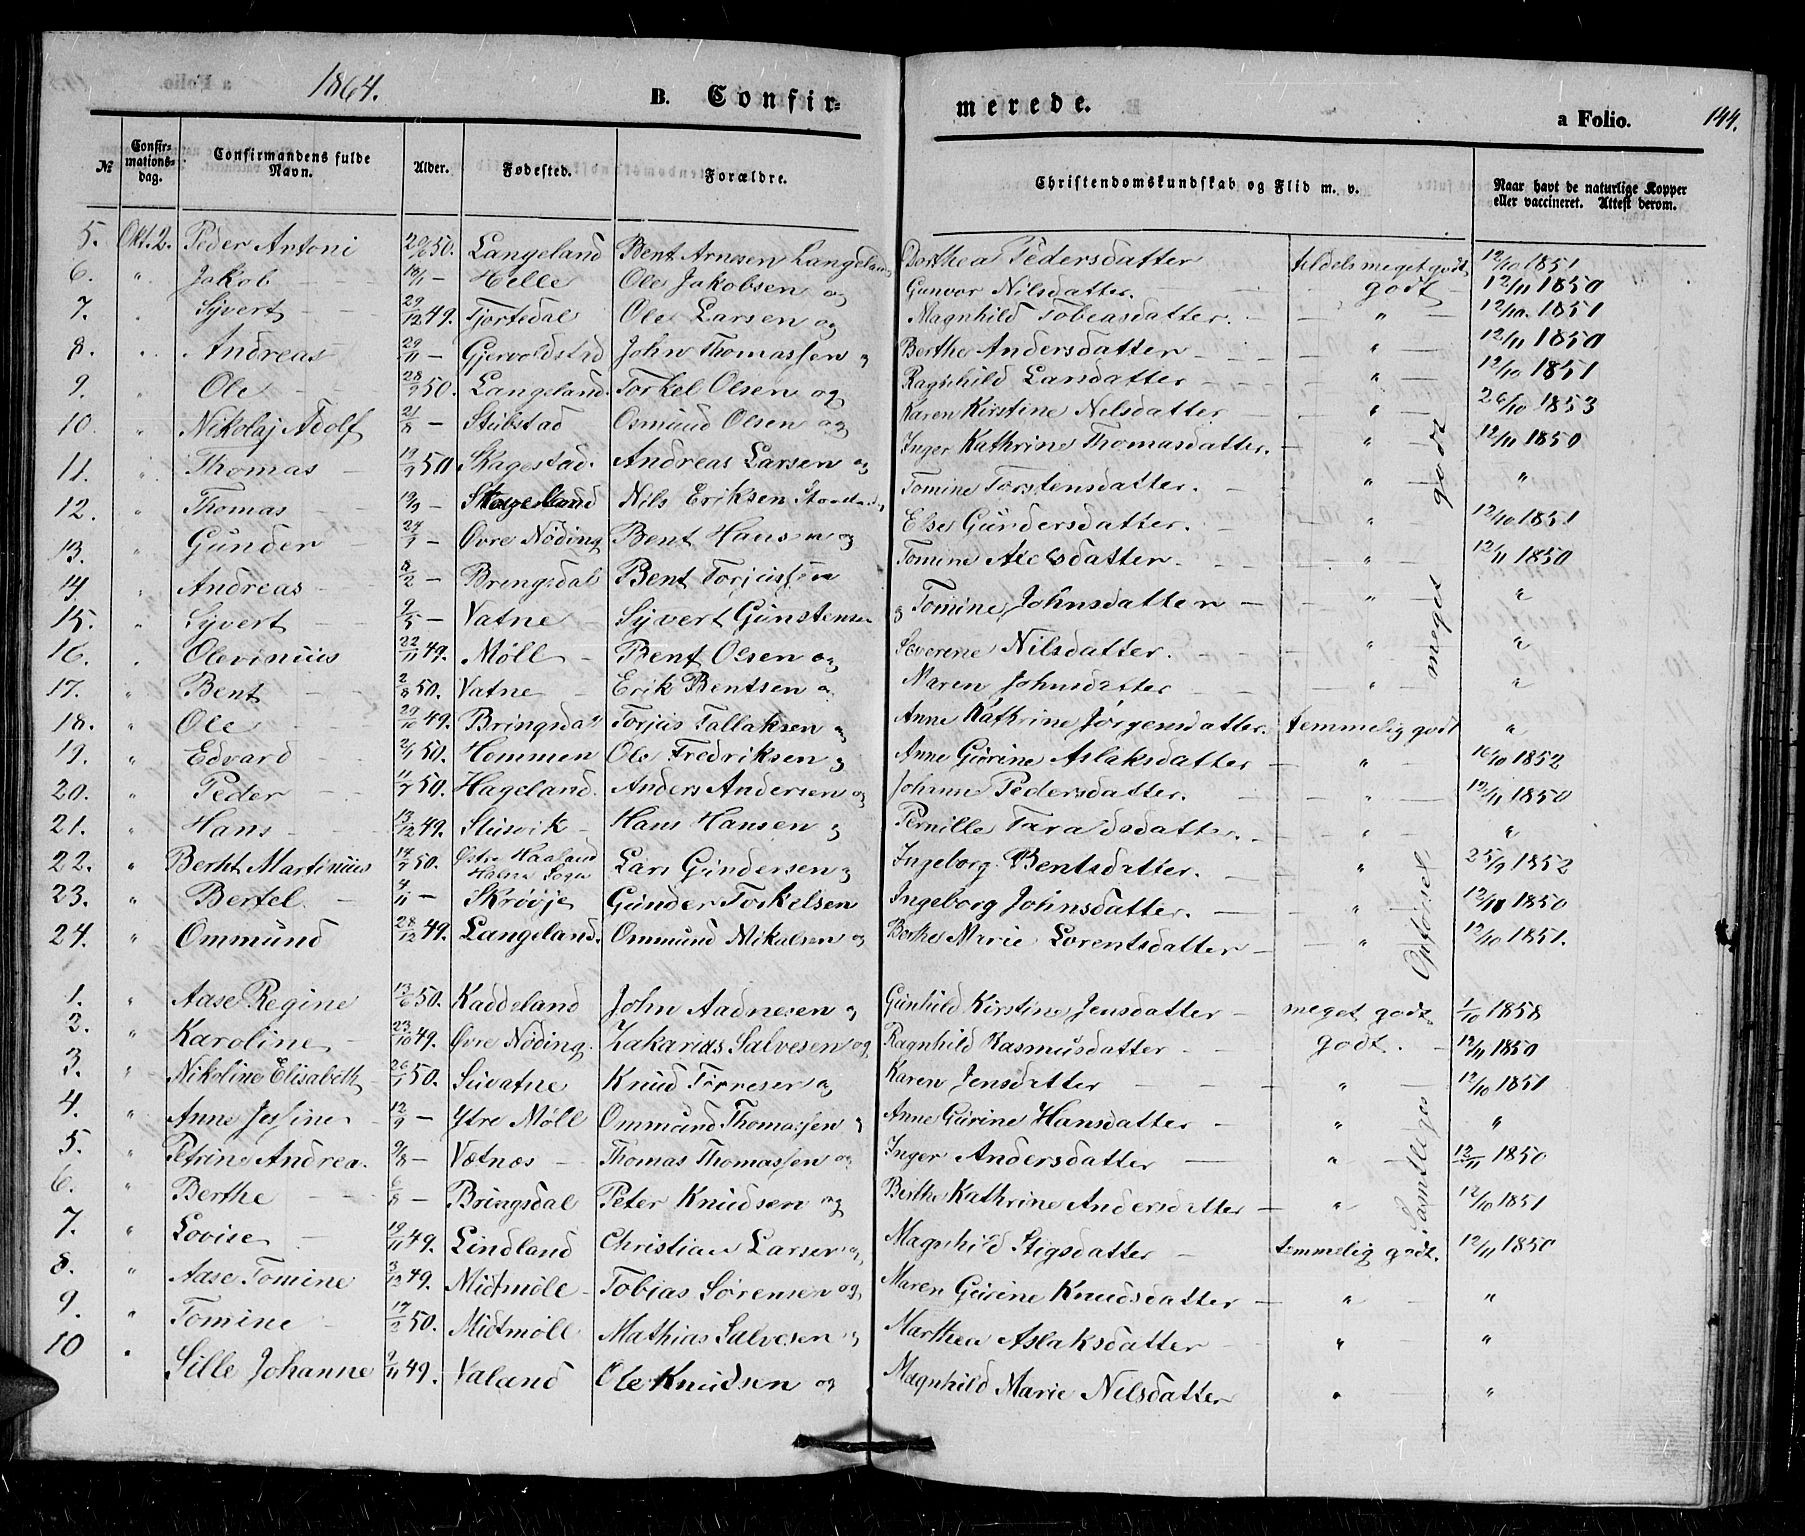 1864.
B. Confir-
merede.
a Folio.
144.
№
Confir-
mations-
dag.
Confirmandens fulde
Navn.
Alder.
Fødested.
Forældre.
Christendomskundskab og Flid m. v.
Naar havt de naturlige Kopper
eller vaccineret. Attest derom.
5. Okt. 2. Peder Antoni 50. Langeland Bent Arnesen Langeland Dorthea Pedersdatter tildels meget godt 12/10 1851
6. " Jakob 18/1 — Helle Ole Jakobsen og Gunvor Nilsdatter. godt 12/11 1850
7. " Syvert 29/12 49. Fjortedal Ole Larsen og Magnhild Tobiasdatter. " 12/10. 1851
8. " Andreas 29/11 — Gjervoldstad John Thomassen og Berthe Andersdatter " 12/11 1850
9. " Ole 28/9 50. Langeland. Torkel Olsen og Ragnhild Larsdatter " 12/10 1851
10. " Nikolaj Adolf 21/8 — Stubstad Osmund Olsen og Karen Kirstine Nilsdatter " 26/10 1853
11. " Thomas 50 Skagestad. Andreas Larsen og Inger Kathrine Thomasdatter. " 12/11 1850
12. " Thomas — Nils Eriksen Tomine Torstensdatter. " "
13. " Gunder — Øvre Nöding Bent Hansen og Else Gundersdatter. " 12/10 1851
14. " Andreas 8/2 — Bringsdal Bent Torjussen Tomine Alesdatter. " 12/11 1850
15. " Syvert 9/5 — Vatne Syvert Gunstensen og Tomine Johnsdatter " "
16. " Olevinius 22/11 49. Möll Bent Olsen og Severine Nilsdatter. " "
17. " Bent 2/8 50. Vatne Erik Bentsen o. Maren Johnsdatter " "
18. " Ole 29/10 49. Bringsdal Torjus Tallaksen og Anne Kathrine Jörgensdatter. temmelig godt "
19. " Edvard 2/1 50. Hommen Ole Fredriksen og Anne Gurine Aslaksdatter " 16/10 1852
20. " Peder 11/7 50. Hageland. Anders Andersen og Johanne Pedersdatter. " 12/11 1850
21. " Hans 13/12 49. Stusvik Hans Hansen og Pernille Taraldsdatter. " "
22. " Berht Martinius 14/9 50. Østre Haaland Halse Sogn Lars Gundersen og Ingeborg Bentsdatter. " 25/9 1852
23. " Bertel. 4/11 — Skröoje Gunder Torkelsen Ingeborg Johnsdatter. " 12/11 1850
24. " Ommund 28/12 49. Langeland. Ommund Mikalsen og Berthe Marie Lorentsdatter " 12/10 1851.
1. " Aase Regine 13/6 50. Kaddeland John Aadnesen og Gunhild Kirstine Jensdatter meget godt. 1/10 1858
2. " Karoline 23/10 49. Øvre Nöding. Zakarias Salvesen og Ragnhild Rasmusdatter godt. 12/11 1850
3. " Nikoline Elisabeth 26/1 50. Suvatne Knud Törresen og Karen Jensdatter " 12/10 1851
4. " Anne Jossine 12/9 — Ytre Möll Ommund Thomassen og Anne Gurine Hansdatter " "
5. " Petrine Andrea. 9/8 — Vætnæs Thomas Thomassen og Inger Andersdatter " 12/11 1850
6. " Berthe 6/8 — Bringsdal Peter Knudsen og Berthe Kathrine Andersdatter " 12/10 1851
7. " Lovise 19/11 49. Lindland Christian Larsen og Magnhild Stigsdatter temmelig godt. 12/11 1850
8. " Aase Tomine 3/12 49. Midtmöll Tobias Sörensen og Maren Gurine Knudsdatter " "
9. " Tomine 17/2 50. Midtmöll Mathias Salvesen og Marthea Aslaksdatter " "
10 " Sille Johanne 9/11 49. Valand Ole Knudsen og Magnhild Marie Nilsdatter " "
Samtliges Opförsel meget godt